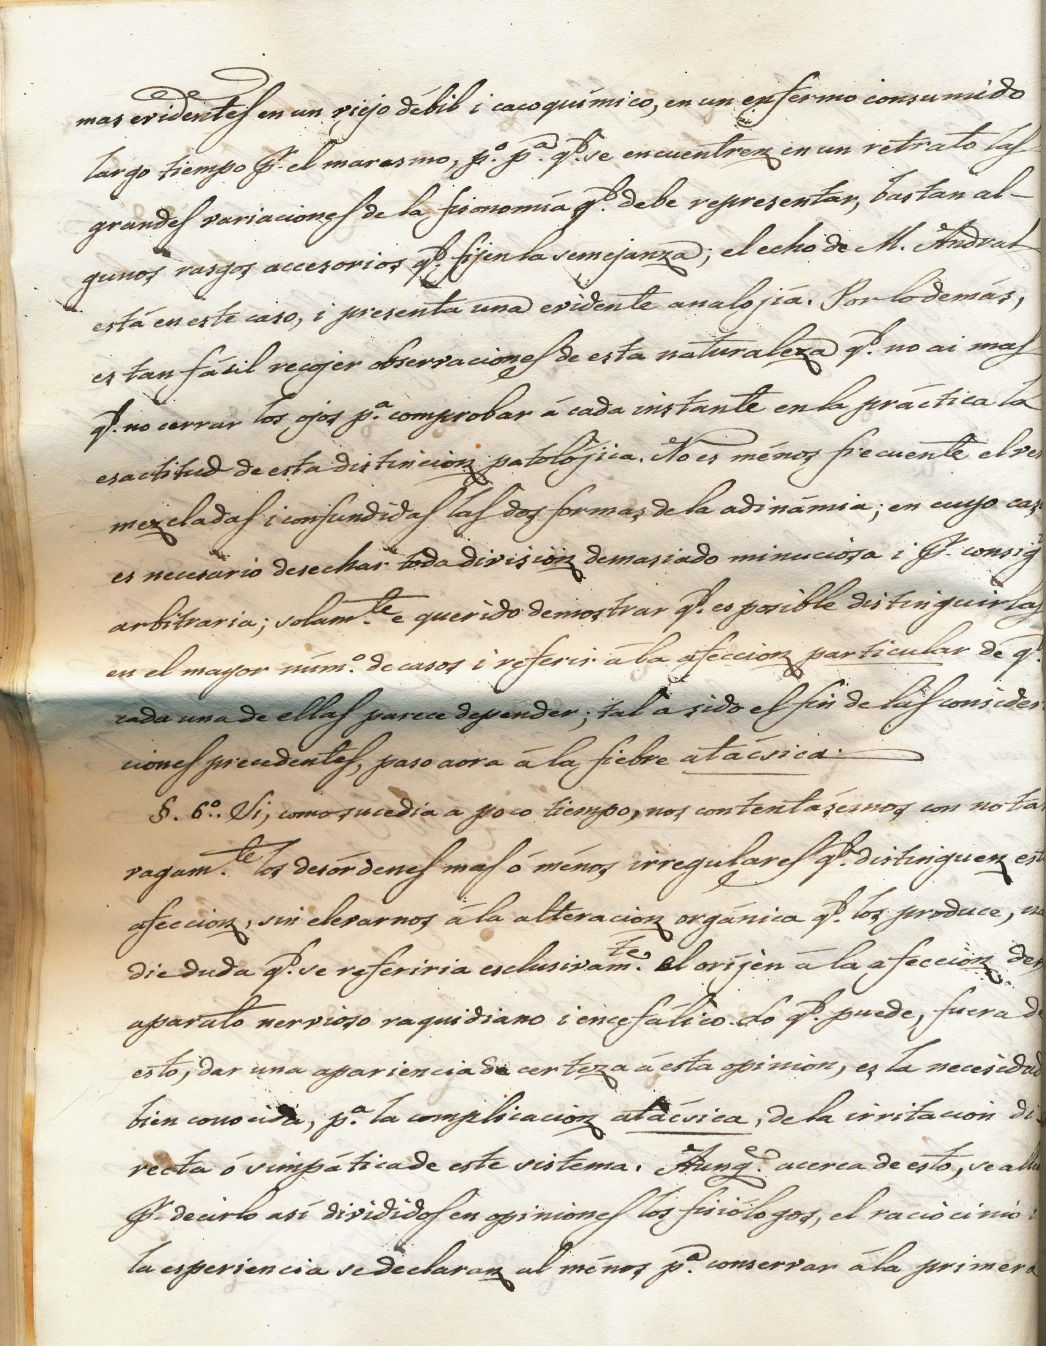 mas evidentes en un viejo débil i cacoquímico, en un enfermo consumido
largo tiempo pr. el marasmo, po. pa. qe. se encuentren en un retrato las
grandes variaciones de la fisonomía qe. debe representar, bastan al-
gunos rasgos accesorios qe. fijen la semejanza; el echo de M. Andral
está en este caso, i presenta una evidente analojía. Por lo demás,
es tan fásil recojer observaciones de esta naturaleza qe. no ai mas
qe. no cerrar los ojos pa. comprobar á cada instante en la práctica la
esactitud de esta distincion patolójica. No es ménos frecuente el ver
mezcladas i confundidas las dos formas de la adinámia; en cuyo cas
es necesario desechar toda division demasiado minuciosa i pr. consige
arbitraria; solamte. e querido demostrar qe. es posible distinguirlas
en el mayor númo. de casos i referir á la afeccion particular de qe.
cada una de ellas parece depender; tal a sido el fin de las consider
ciones precedentes, paso aora á la fiebre atácsica.
§. 6o.. Si, como sucedia a poco tiempo, nos contentásemos con nota
vagamte. los desórdenes mas ó ménos irregulares qe. distinguen est
afeccion, sin elevarnos á la alteracion orgánica qe. los produce, na
die duda qe. se referiria esclusivamte. el orijen á la afeccion del
aparato nervioso raquidiano i encefálico. Lo qe. puede, fuera de
esto, dar una apariencia de certeza á esta opinion, es la necesidad
bien conocida, pa. la complicacion atácsica, de la irritacion di
recta ó simpática de este sistema. Aunqe. acerca de esto, se allan
pr. decirlo así divididos en opiniones los fisiólogos, el raciocinio i
la esperiencia se declaran al ménos pa. conservar á la primera